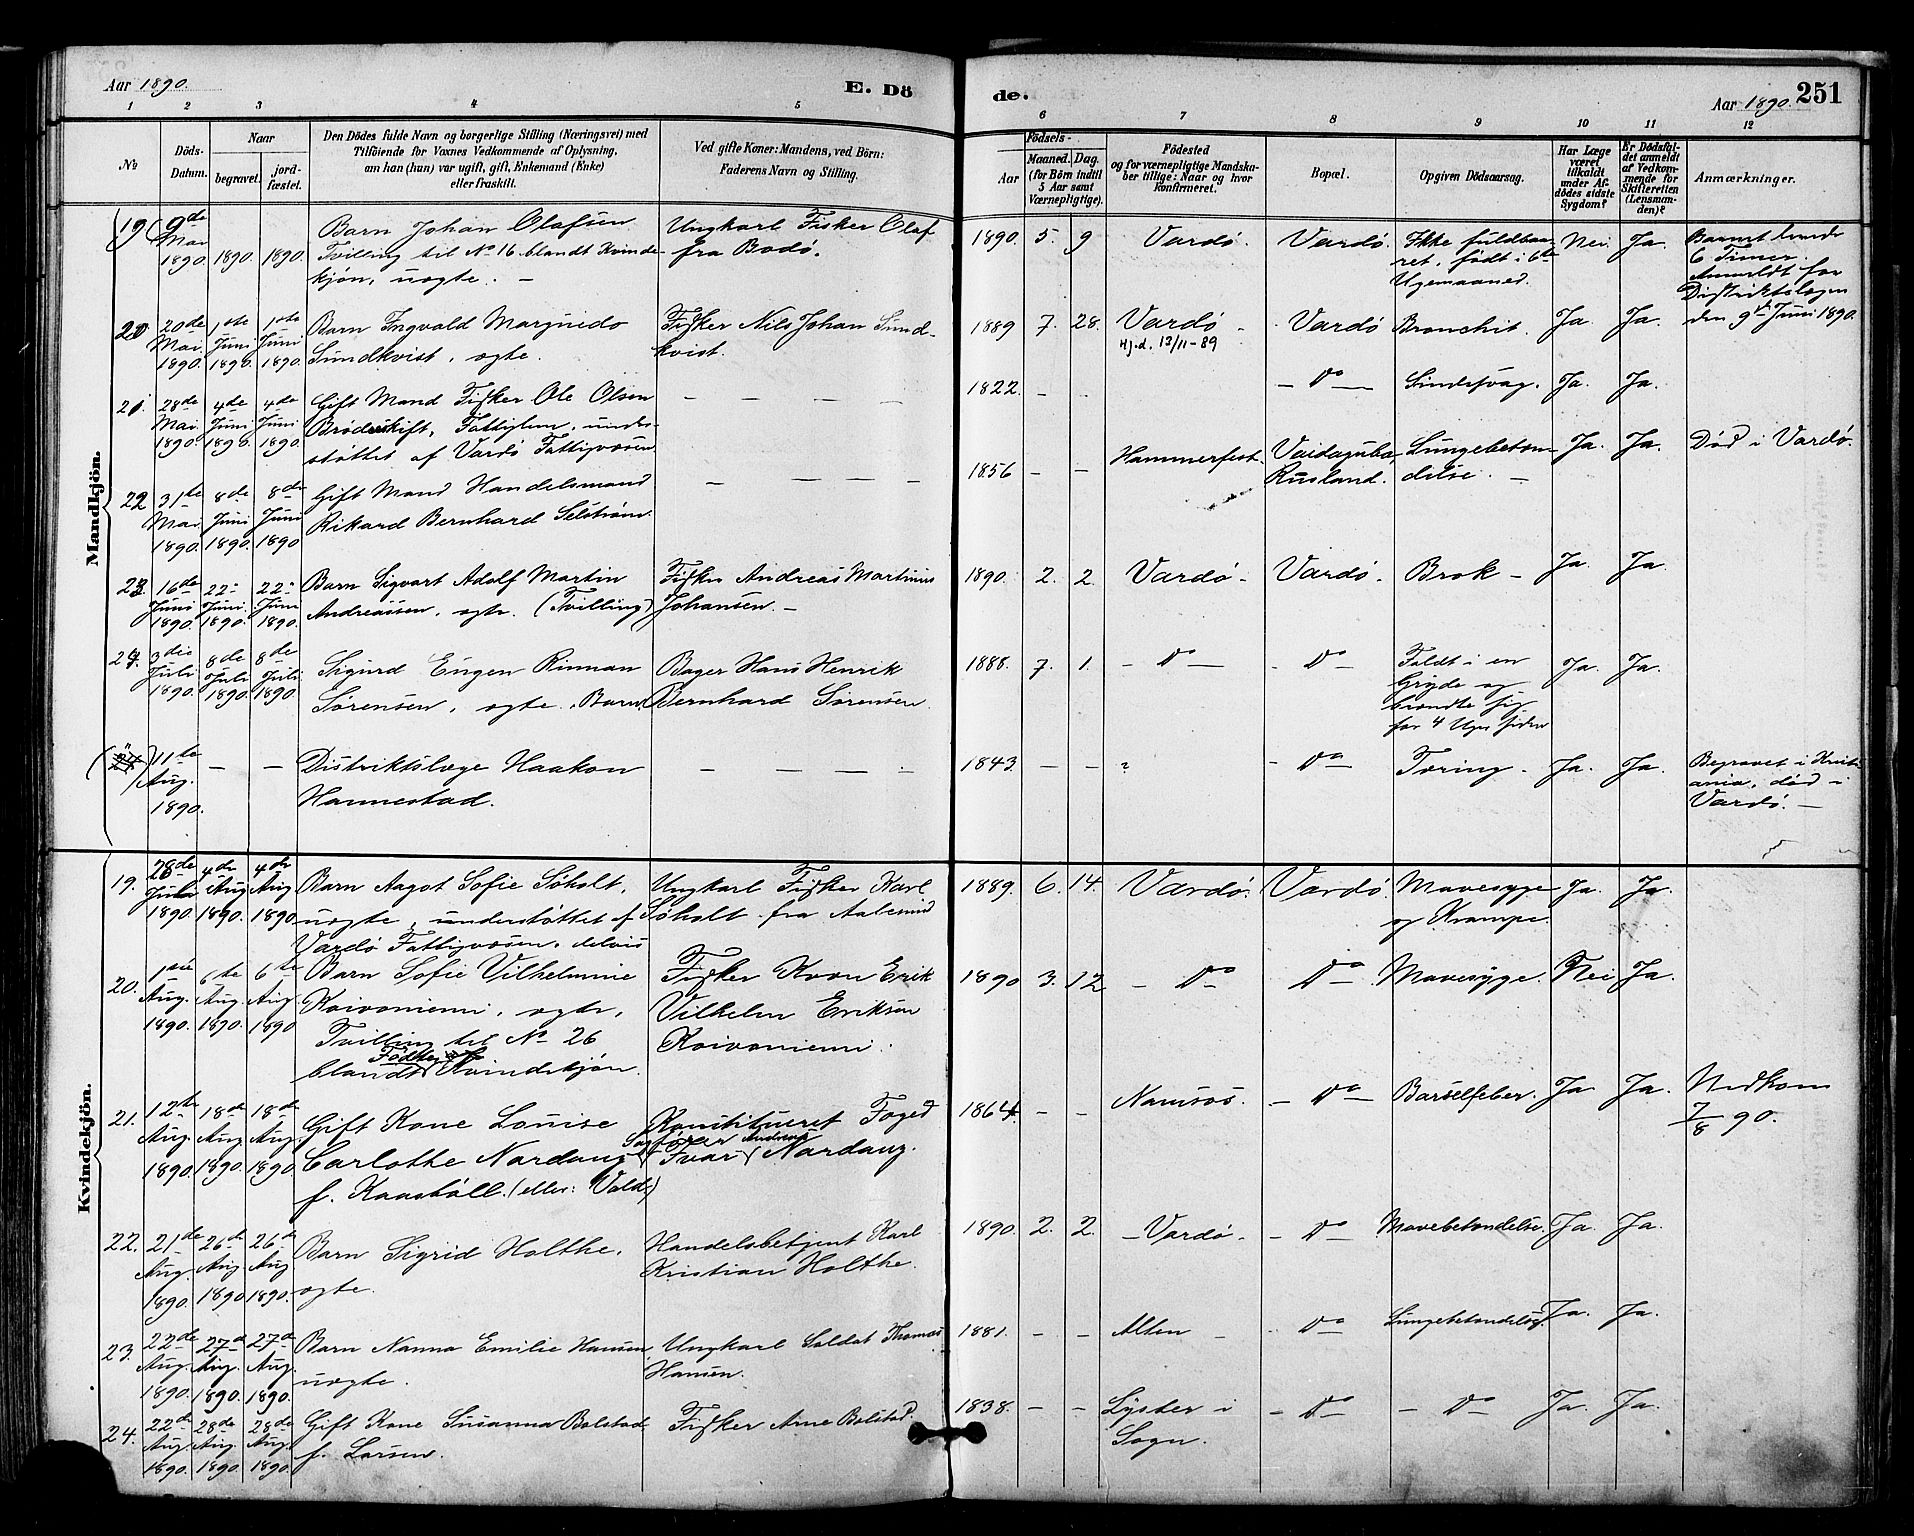 Aar 1890. E. Dö
de. Aar 1890. 251
1 2 3 4 5
6 7 8 9 10 11 12
No
Döds-
Datum.
Naar
begravet.
jord-
fæstet.
Den Dödes fulde Navn og borgerlige Stilling (Næringsvei) med
Tilföiende for Voxnes Vedkommende af Oplysning,
om han (hun) var ugift, gift, Enkemand (Enke)
eller fraskilt.
Ved gifte Koner: Mandens, ved Börn:
Faderens Navn og Stilling.
Födsels-
Aar
Maaned. Dag.
(for Börn indtil
5 Aar samt
Værnepligtige).
Födested
og for værnepligtige Mandska-
ber tillige: Naar og hvor
Konfirmeret.
Bopæl.
Opgiven Dödsaarsag.
Har Læge
været
tilkaldt
under Af-
dödes sidste
Sygdom?
Er Dödsfal-
det anmeldt
af Vedkom-
mende for
Skifteretten
(Lensman-
den)?
Anmærkninger.
Mandkjön.
19. 9de Mai 1890. 1890. 1890.
Barn Johan Olafsen
Tvilling til No 16 blandt Kvinde-
kjön, uægte. —
Ungkarl Fisker Olaf
fra Bodö.
1890. 5. 9 Vardö. Vardö.
Ikke fuldbaa-
ret, født i 6te
Ugemaaned.
Nei. Ja.
Barnet levede
6 Timer.
Anmeldt for
Distriktslægen
den 9de Juni 1890.
20 20de Mai 1890. 1ste Juni 1890. 1ste Juni 1890.
Barn Ingvald Margnido
Sundkvist, ægte.
Fisker Nils Johan Sund-
kvist.
1889 7. 28. Vardö —
Hj.d. 12/11-89
Vardö Bronchit. Ja. Ja.
21. 28de Mai 1890. 4de Juni 1890. 4de Juni 1890.
Gift Mand Fisker Ole Olsen
Brodskift, Fattiglem, under-
støttet af Vardö Fattigvæsen
— — — — —
1822. — — Do — Sindssvag. Ja. Ja.
22 31te Mai 1890. 8de Juni 1890. 8de Juni 1890
Gift Mand Handelsmand
Rikard Bernhard Selström.
— — — — —
1856 — — Hammerfest. Vaidaguba,
Rusland.
Lungebetæn-
delse. —
Ja. Ja. Død i Vardö.
23. 16de Juni 1890. 22- Juni 1890. 22- Juni 1890.
Barn Sigvart Adolf Martin
Andreassen, ægte. (Tvilling)
Fisker Andreas Martinus
Johansen. —
1890. 2. 2. Vardö — Vardö. Brok — Ja. Ja.
24. 3die Juli 1890. 8de Juli 1890. 8de Juli 1890.
Sigurd Eugen Rinman
Sörensen, ægte. Barn.
Bager Hans Henrik
Bernhard Sörensen.
1888. 7. 1. — Do — — Do —
Faldt i en
Gryde og
brændte sig
for 4 Uger siden
Ja. Ja.
(24) 11te Aug. 1890. — —
Distriktslæge Haakon
Hannestad.
— — — —
1843. — — ? — Do Tæring — Ja. Ja.
Begravet i Kristi-
ania, død i
Vardö. —
Kvindekjön.
19. 28de Juli 1890. 4de Aug 1890. 4de Aug. 1890.
Barn Aagot Sofie Söholt,
uægte, understøttet af
Vardö Fattigvæsen, delvis
Ungkarl Fisker Karl
Söholt fra Aalesund
1889. 6. 14. Vardö. Vardö. Mavesyge
og Krampe.
Ja. Ja.
20. 1ste Aug. 1890. 6te Aug. 1890. 6te Aug. 1890
Barn Sofie Vilhelmine
Koivoniemi, ægte,
Tvilling til No 26
blandt Fødte af Kvindekjön.
Fisker Kvæn Erik
Vilhelm Eriksen
Koivoniemi.
1890 3. 12 — Do Do — Mavesyge. Nei Ja.
21. 12te Aug. 1890. 18de Aug. 1890. 18de Aug. 1890
Gift Kone Louise
Carlothe Nordaug
f. Kaasböll. (eller: Vold)
Konstitueret Foged
Sagfører Andreas
Ivar Nordaug.
1864. — — Namsos. — Do — Barselfeber. Ja. Ja. Nedkom
7/8 90.
22. 21de Aug. 1890. 26de Aug 1890 26de Aug 1890.
Barn Sigrid Holthe,
ægte.
Handelsbetjent Karl
Kristian Holthe.
1890. 2. 2. — Vardö. — Do — Mavebetændelse. Ja. Ja.
23. 22de Aug. 1890. 27de Aug. 1890. 27de Aug. 1890.
Barn Nanna Emilie Hansen,
uægte.
Ungkarl Soldat Thomas
Hansen.
1881. — — Alten — Do — Lungebetændelse. Ja. Ja.
24. 22de Aug. 1890. 28de Aug. 1890. 28de Aug. 1890.
Gift Kone Susanna Bolstad
f. Larsen.
Fisker Arne Bolstad.
1838. — — Lyster i
Sogn.
— Do — — Do Ja. Ja.